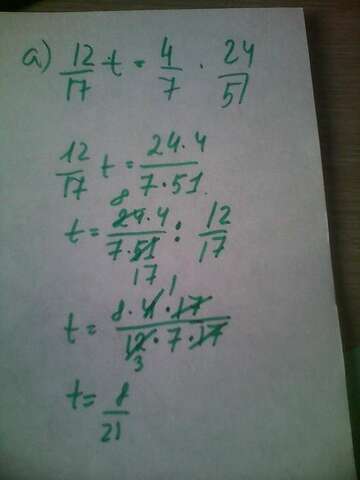 a) 12/17 t = 4/7 · 24/51
12/17 t = 24·4/7·51
t = 8 24·4/7·51 17 : 12/17
t = 8·4 1·17/12 3·7·17
t = 8/21